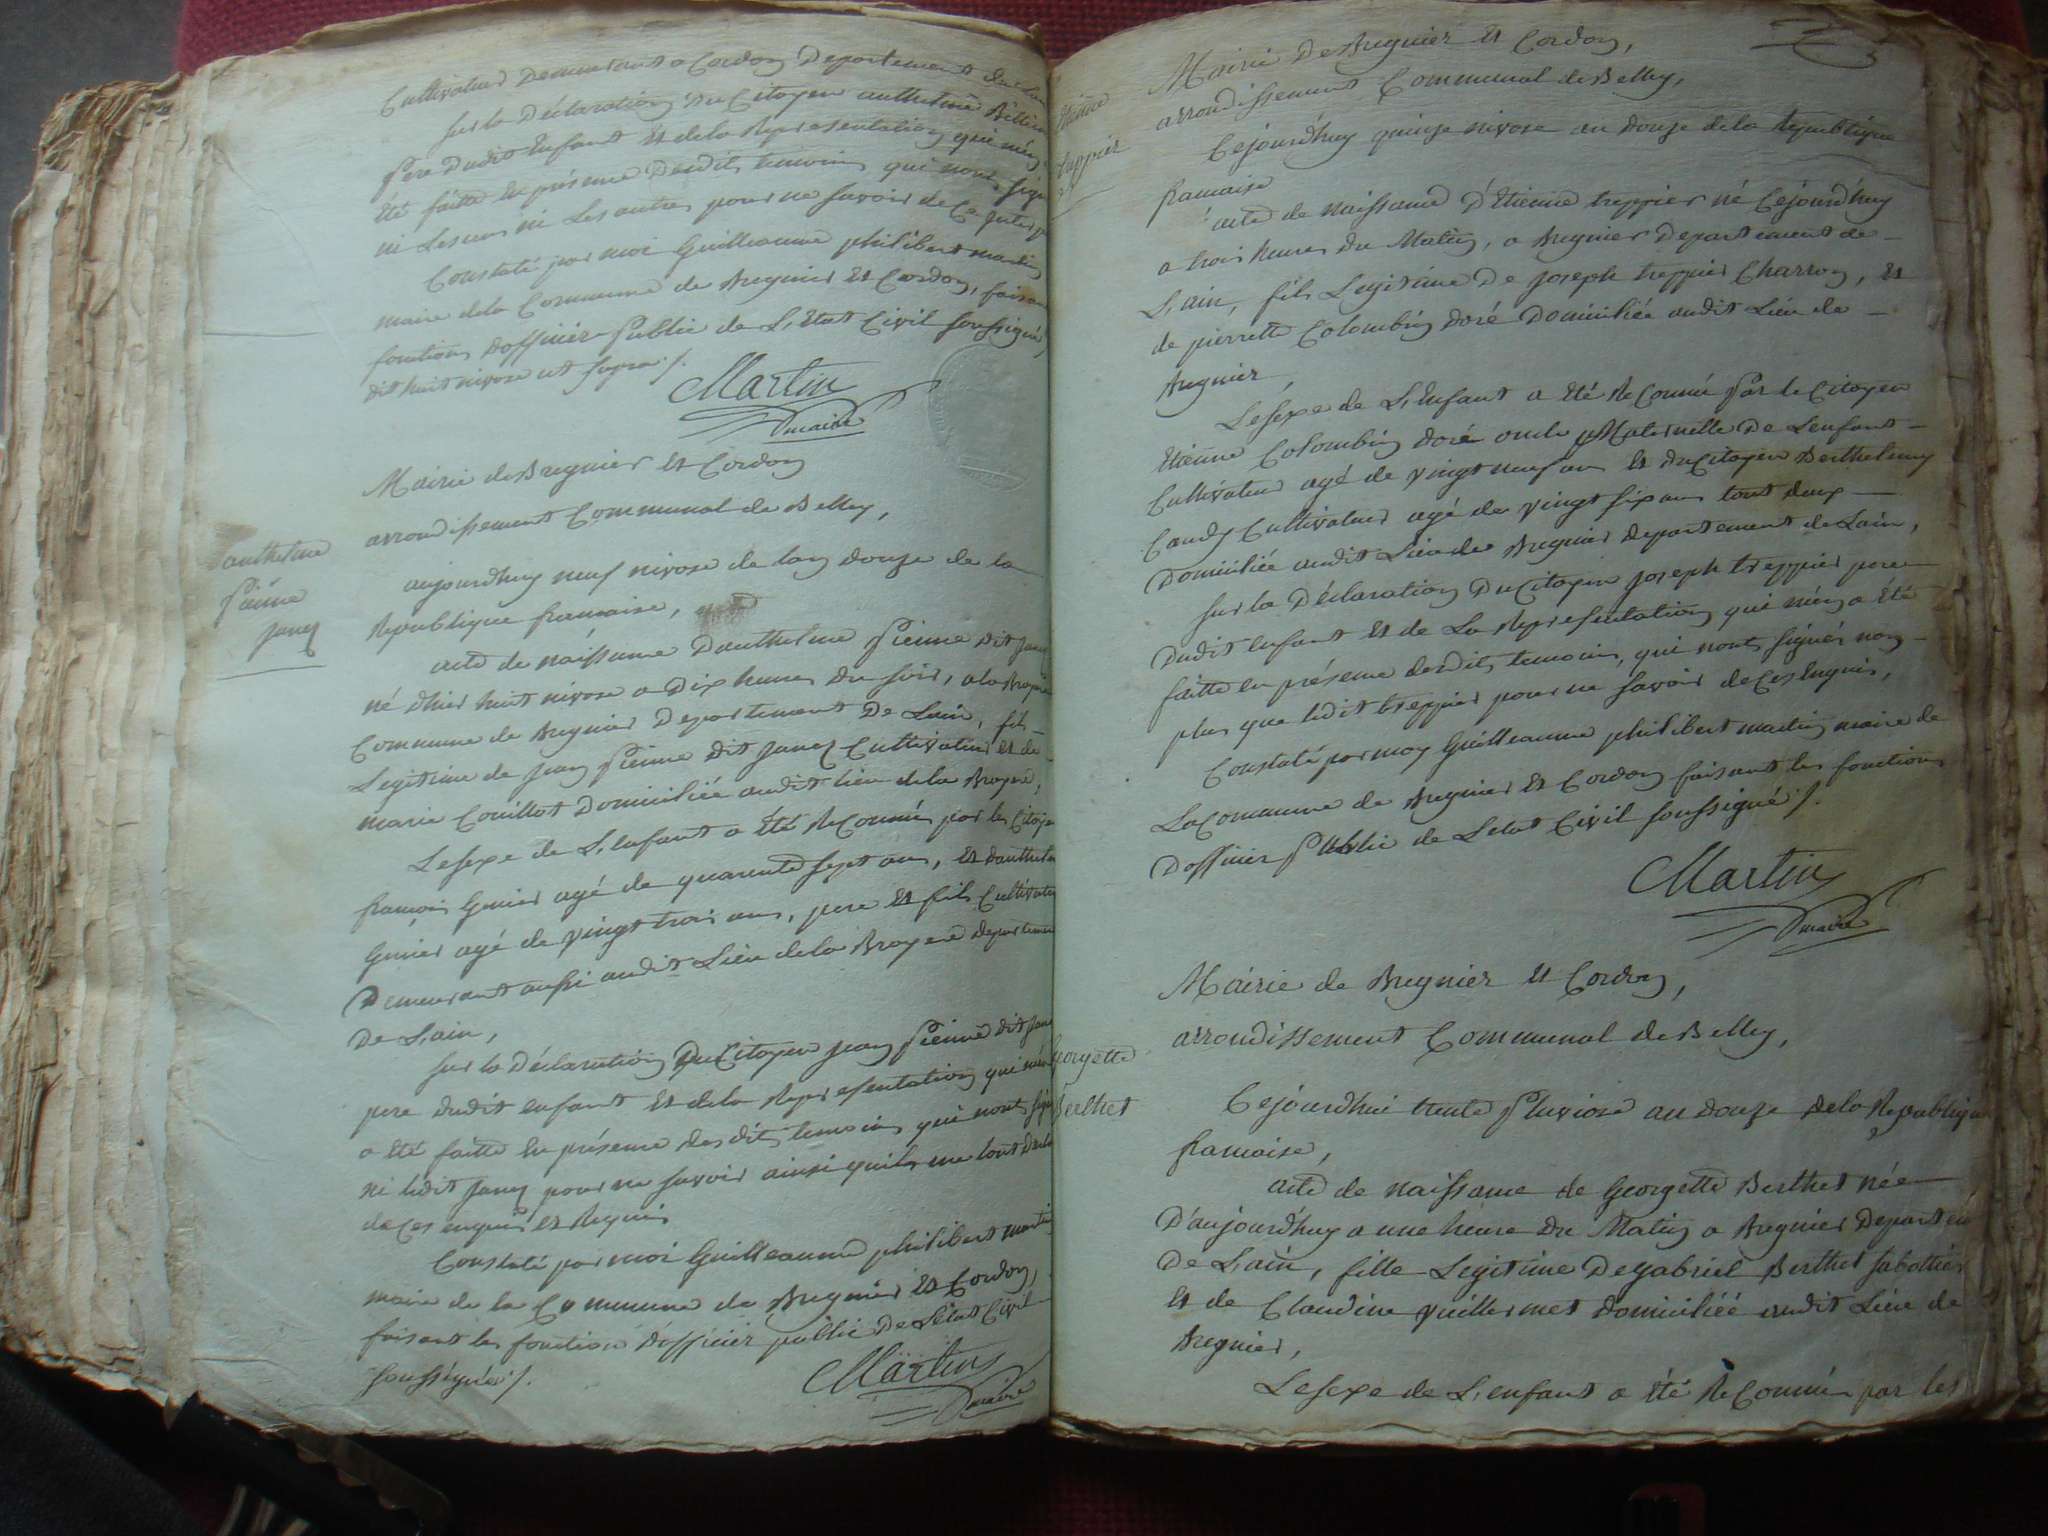 Cultivateur demeurant a Cordon Departement de
sur la Déclaration du Citoyen authelme
pere dudit Enfant et de la Representation qui m'en
été faitte en présence desdits temoins qui n'ont signé
ni Les uns ni Les autres pour ne savoir de Ce
Constaté par moi Guilleaume philibert martin
maire de la Commune de Bregnier et Cordon, faisant
fonctions d'officier Public de L'Etat Civil soussigné,
dit huit nivose ut supra ./.
Martin
maire
Mairie de Bregnier et Cordon
arrondissement Communal de Belley,
authelme
Pienne
Janez
aujourdhuy neuf nivose de lan douze de la
Republique francaise,
acte de náissance Dauthelme Pienne dit
né dhier huit nivose a Dix heures du soir, a la
Commune de Bregnier Departement De Lain, fils
Legitime de Jean Pienne dit Janez Cultivateur et de
marie Couillot domiciliée audit lieu de la Broyere,
Le sexe de L'enfant a été Reconnu par les Citoyens
francois Genier agé de quarente sept ans, et dauthelme
Genier agé de vingt trois ans, pere et fils Cultivateurs
Demeurant aussi audit Lieu de la Broyere departement
De Lain,
sur la Déclaration Du Citoyen Jean Pienne dit
pere dudit enfant et de la Representation qui m'en
a été faitte en présence des dits temoins qui n'ont signé
ni ledit Janez pour ne savoir ainsi quils me l'ont
de ces enquis et Requis
Constaté par moi Guilleaume philibert martin
maire de la Commune de Bregnier et Cordon,
faisant les fonction d'officier public De L'état Civil
soussigné ./.
Martin
maire
Mairie De Bregnier et Cordon,
arrondissement Communal de Belley,
Etienne
treppier
Cejourd'huy quinze nivose an douze de la Republique
francaise
acte de naissance d'Etienne treppier né Cejourd'huy
a trois heures du Matin, a Bregnier Departement de
L'ain, fils Legitime De Joseph treppier Charron, et
de pierrette Colombin doré Domiciliée audit Lieu de
Bregnier,
Le sexe de L'Enfant a été Reconnu Par le Citoyen
Etienne Colombin doré oncle Maternelle De Lenfant
Cultivateur agé de vingt neuf ans et du Citoyen Berthelemy
Candy Cultivateur agé de vingt six ans tout deux
Domiciliée audit Lieu de Bregnier departement de Lain,
sur la Déclaration Du Citoyen Joseph treppier pere
Dudit enfant et de La Representation qui m'en a été
faitte en présence desdits temoins, qui n'ont signés non
plus que ledit treppier pour ne savoir de Ces Enquis,
Constaté par moy Guilleaume philibert martin maire de
La Commune de Bregnier et Cordon faisant les fonctions
Dofficier Public de Letat Civil soussigné ./.
Martin
maire
Mairie de Bregnier et Cordon,
arrondissement Communal de Belley,
Georgette
Berthet
Cejourdhui trente Pluviose an douze de la Republique
francaise,
acte de naissance de Georgette Berthet née
D'aujourd'huy a une héure du Matin a Bregnier Departem
De L'ain, fille Legitime De gabriel Berthet sabottier
et de Claudine vuillermet domiciliéé audit Lieu de
Bregnier,
Le sexe de L'enfant a été Reconnu par les